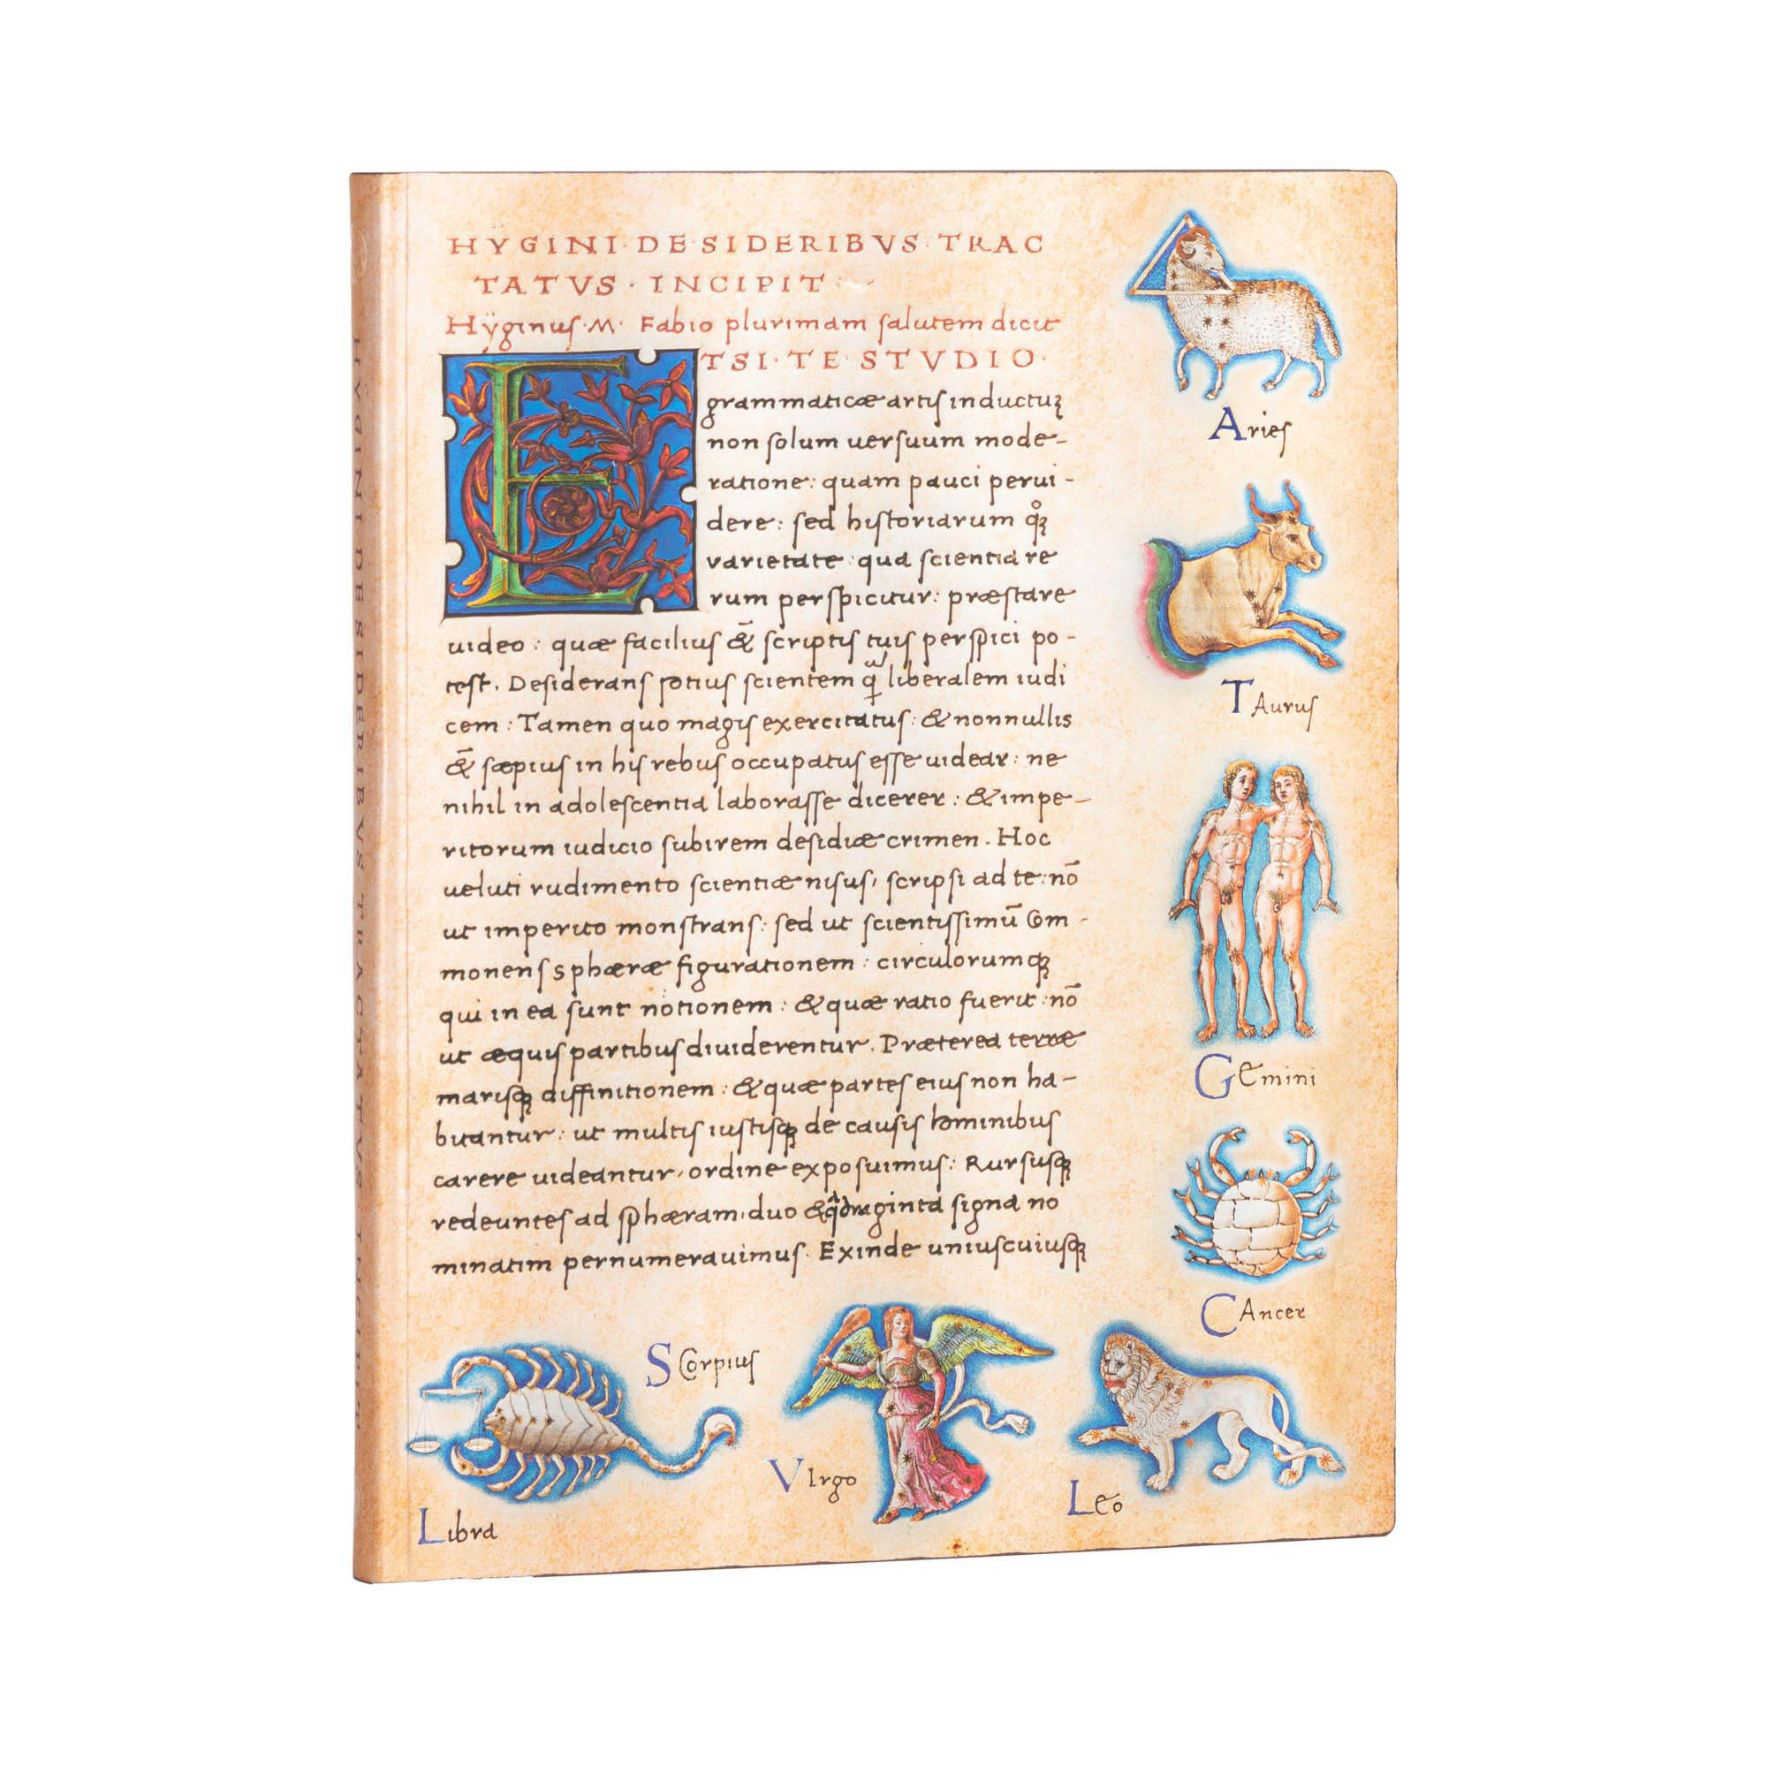 HYGINI·DE·SIDERIBVS·TRAC
TATVS·INCIPIT
Hÿginuſ·M· Fabio plurimam ſalutem dicit
ETSI·TE·STVDIO·
grammaticæ artiſ inductuꝫ
non ſolum uerſuum mode-
ratione: quam pauci perui-
dere: ſed hiſtoriarum qꝫ
varietate: qua ſcientia re
rum perſpicitur: præſtare
uideo: quæ faciliuſ & ſcriptiſ tuiſ perſpici po-
teſt. Deſideranſ potiuſ ſcientem q liberalem iudi
cem: Tamen quo magiſ exercitatuſ: & nonnullis
& ſæpiuſ in hiſ rebuſ occupatuſ eſſe uidear: ne
nihil in adoleſcentia laboraſſe dicerer: & impe-
ritorum iudicio ſubirem deſidiæ crimen. Hoc
ueluti rudimento ſcientiæ niſuſ, ſcripſi ad te: nō
ut imperito monſtranſ: ſed ut ſcientiſſimū Com-
monenſ sphæræ figurationem: circulorumqꝫ
qui in ea ſunt notionem: & quæ ratio fuerit: nō
ut æquiſ partibuſ diuiderentur. Præterea terræ
mariſqꝫ diffinitionem: & quæ parteſ eiuſ non ha-
bitantur: ut multiſ iuſtiſqꝫ de cauſiſ hominibuſ
carere uideantur, ordine expoſuimuſ: Rurſuſqꝫ
redeunteſ ad ſphæram, duo & qadraginta ſigna no
minatim pernumerauimuſ. Exinde uniuſcuiuſqꝫ
Arieſ
TAuruſ
GEmini
CAncer
LEo
VIrgo
SCorpiuſ
Libra
HŸGINI DE SIDERIBVS TRACTATVS INCIPIT